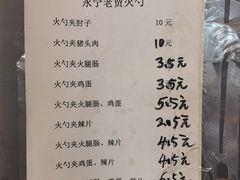 永宁老贾火勺
火勺夹肘子 10元
火勺夹猪头肉 10元
火勺夹火腿肠 3.5元
火勺夹鸡蛋 3.5元
火勺夹火腿肠、鸡蛋 5.5元
火勺夹辣片 2.5元
火勺夹火腿肠、辣片 4.5元
火勺夹鸡蛋、辣片 4.5元